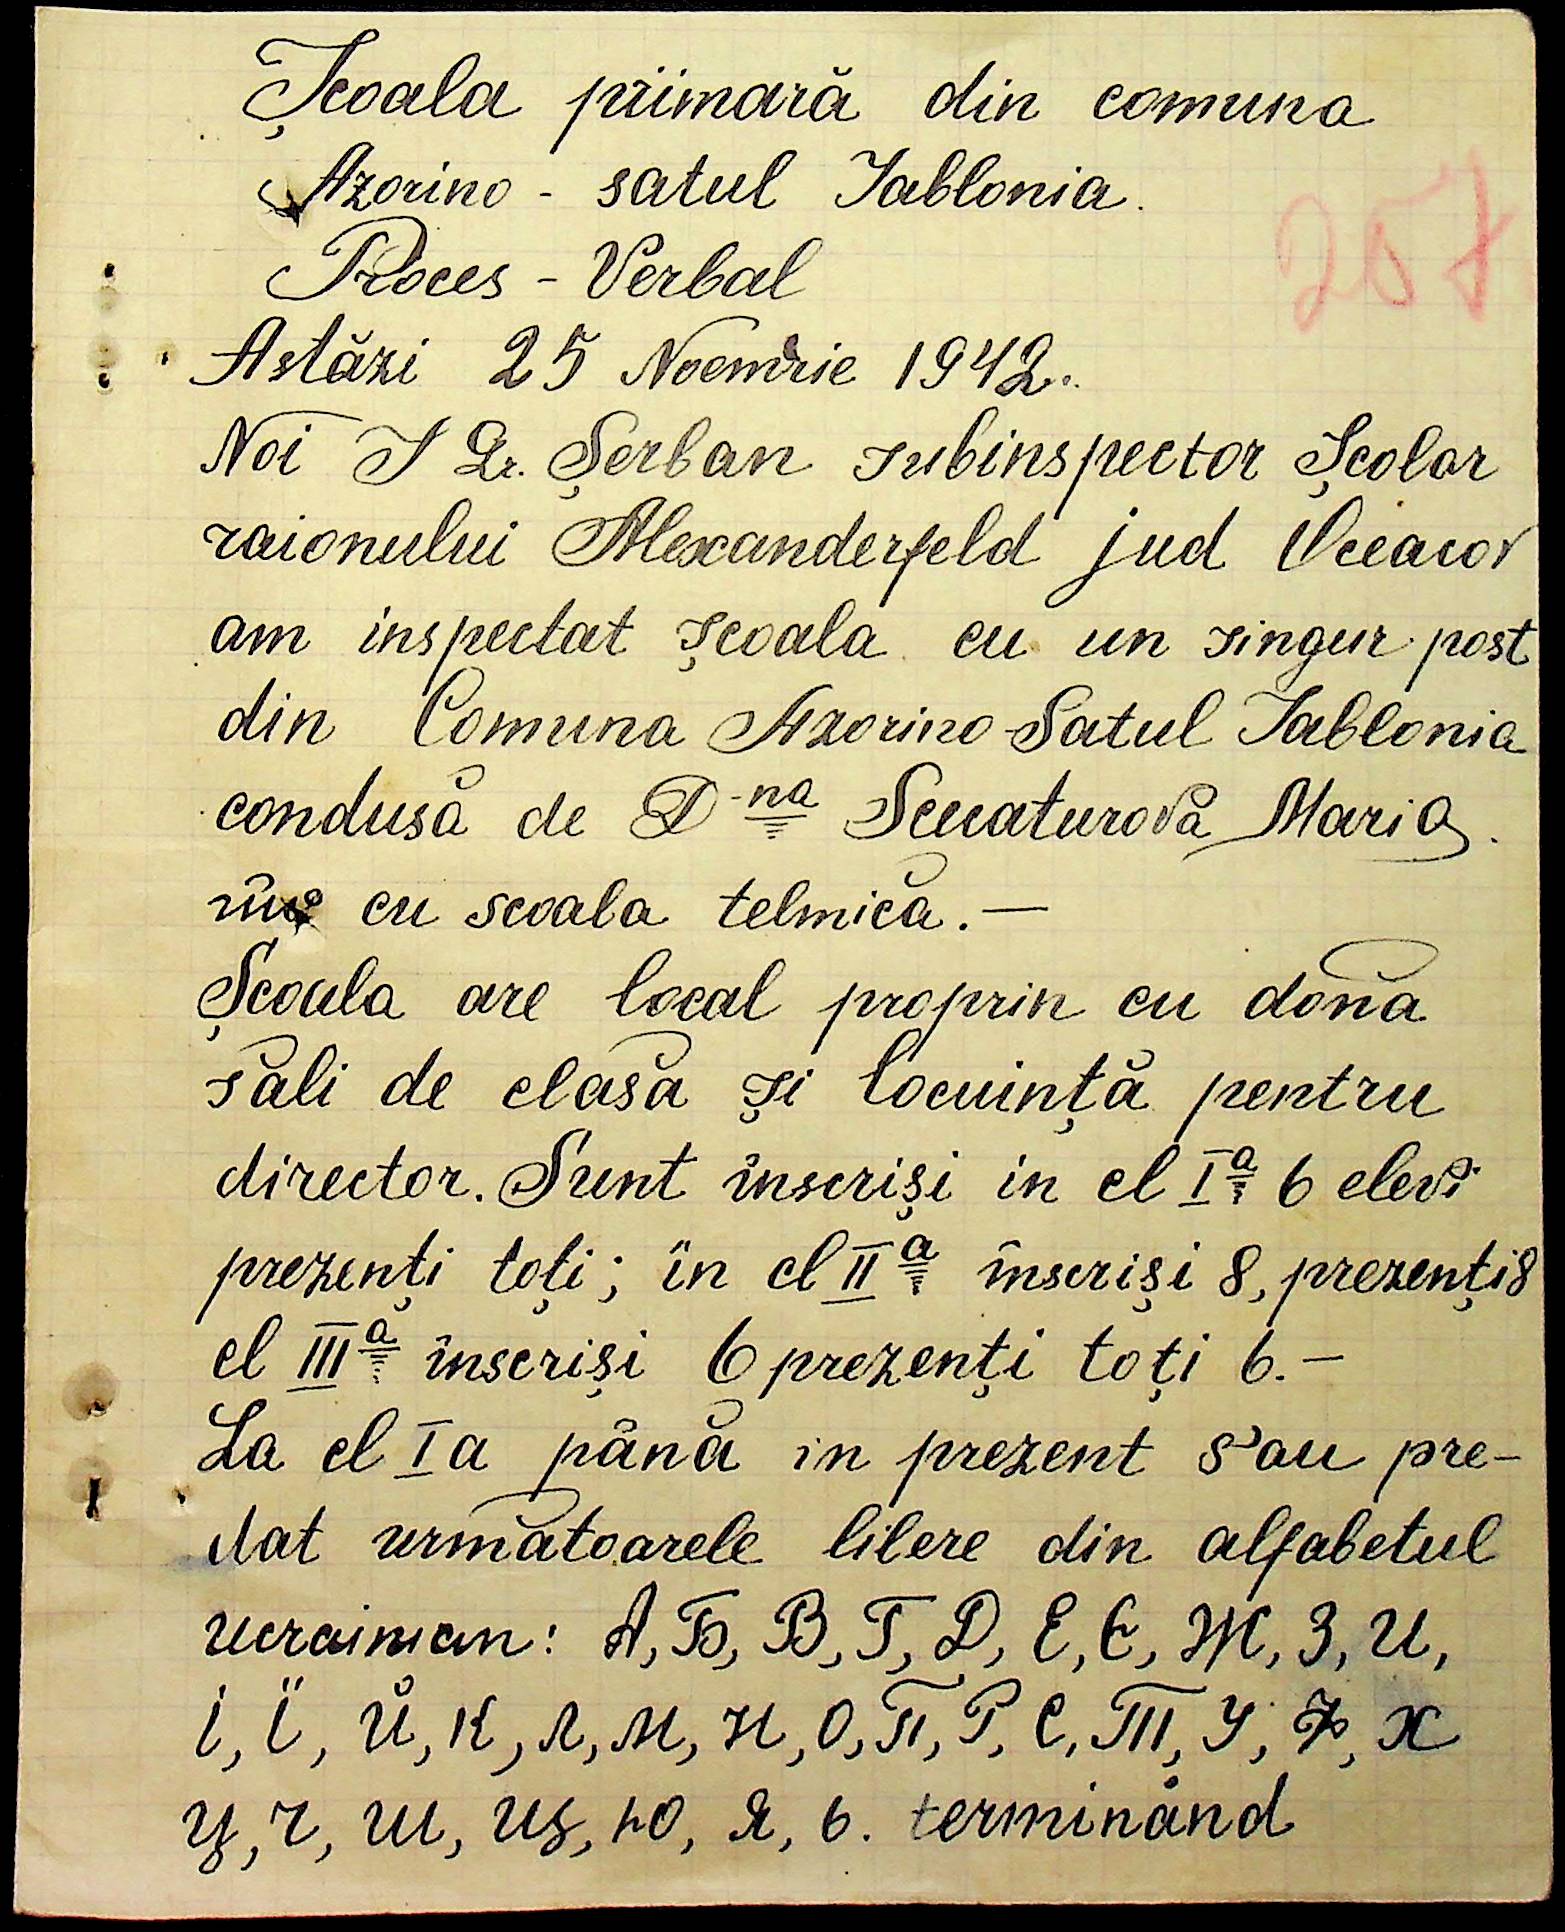 Școala primară din comuna
Azorino - satul Iablonia.
257
Proces - Verbal
Astăzi 25 Noemvrie 1942.
Noi I Gr. Șerban subinspector Școlar
raionului Alexanderfeld jud Oceacov
am inspectat școala cu un singur post
din Comuna Azorino - Satul Iablonia
condusă de D-na Scucaturova Maria.
cu scoala telmică. —
Școala are local propriu cu două
săli de clasă și locuință pentru
director. Sunt înscriși in cl Iª 6 elevi
prezenți toți; în cl IIª înscriși 8, prezenți 8
cl IIIª înscriși 6 prezenți toți 6. —
La cl I a până in prezent s'au pre-
dat următoarele litere din alfabetul
ucrainian: А, Б, В, Г, Д, Е, Є, Ж, З, И,
І, Ї, Й, К, Л, М, Н, О, П, Р, С, Т, У, Ф, Х
Ц, Ч, Ш, Щ, Ю, Я, Ь. terminând